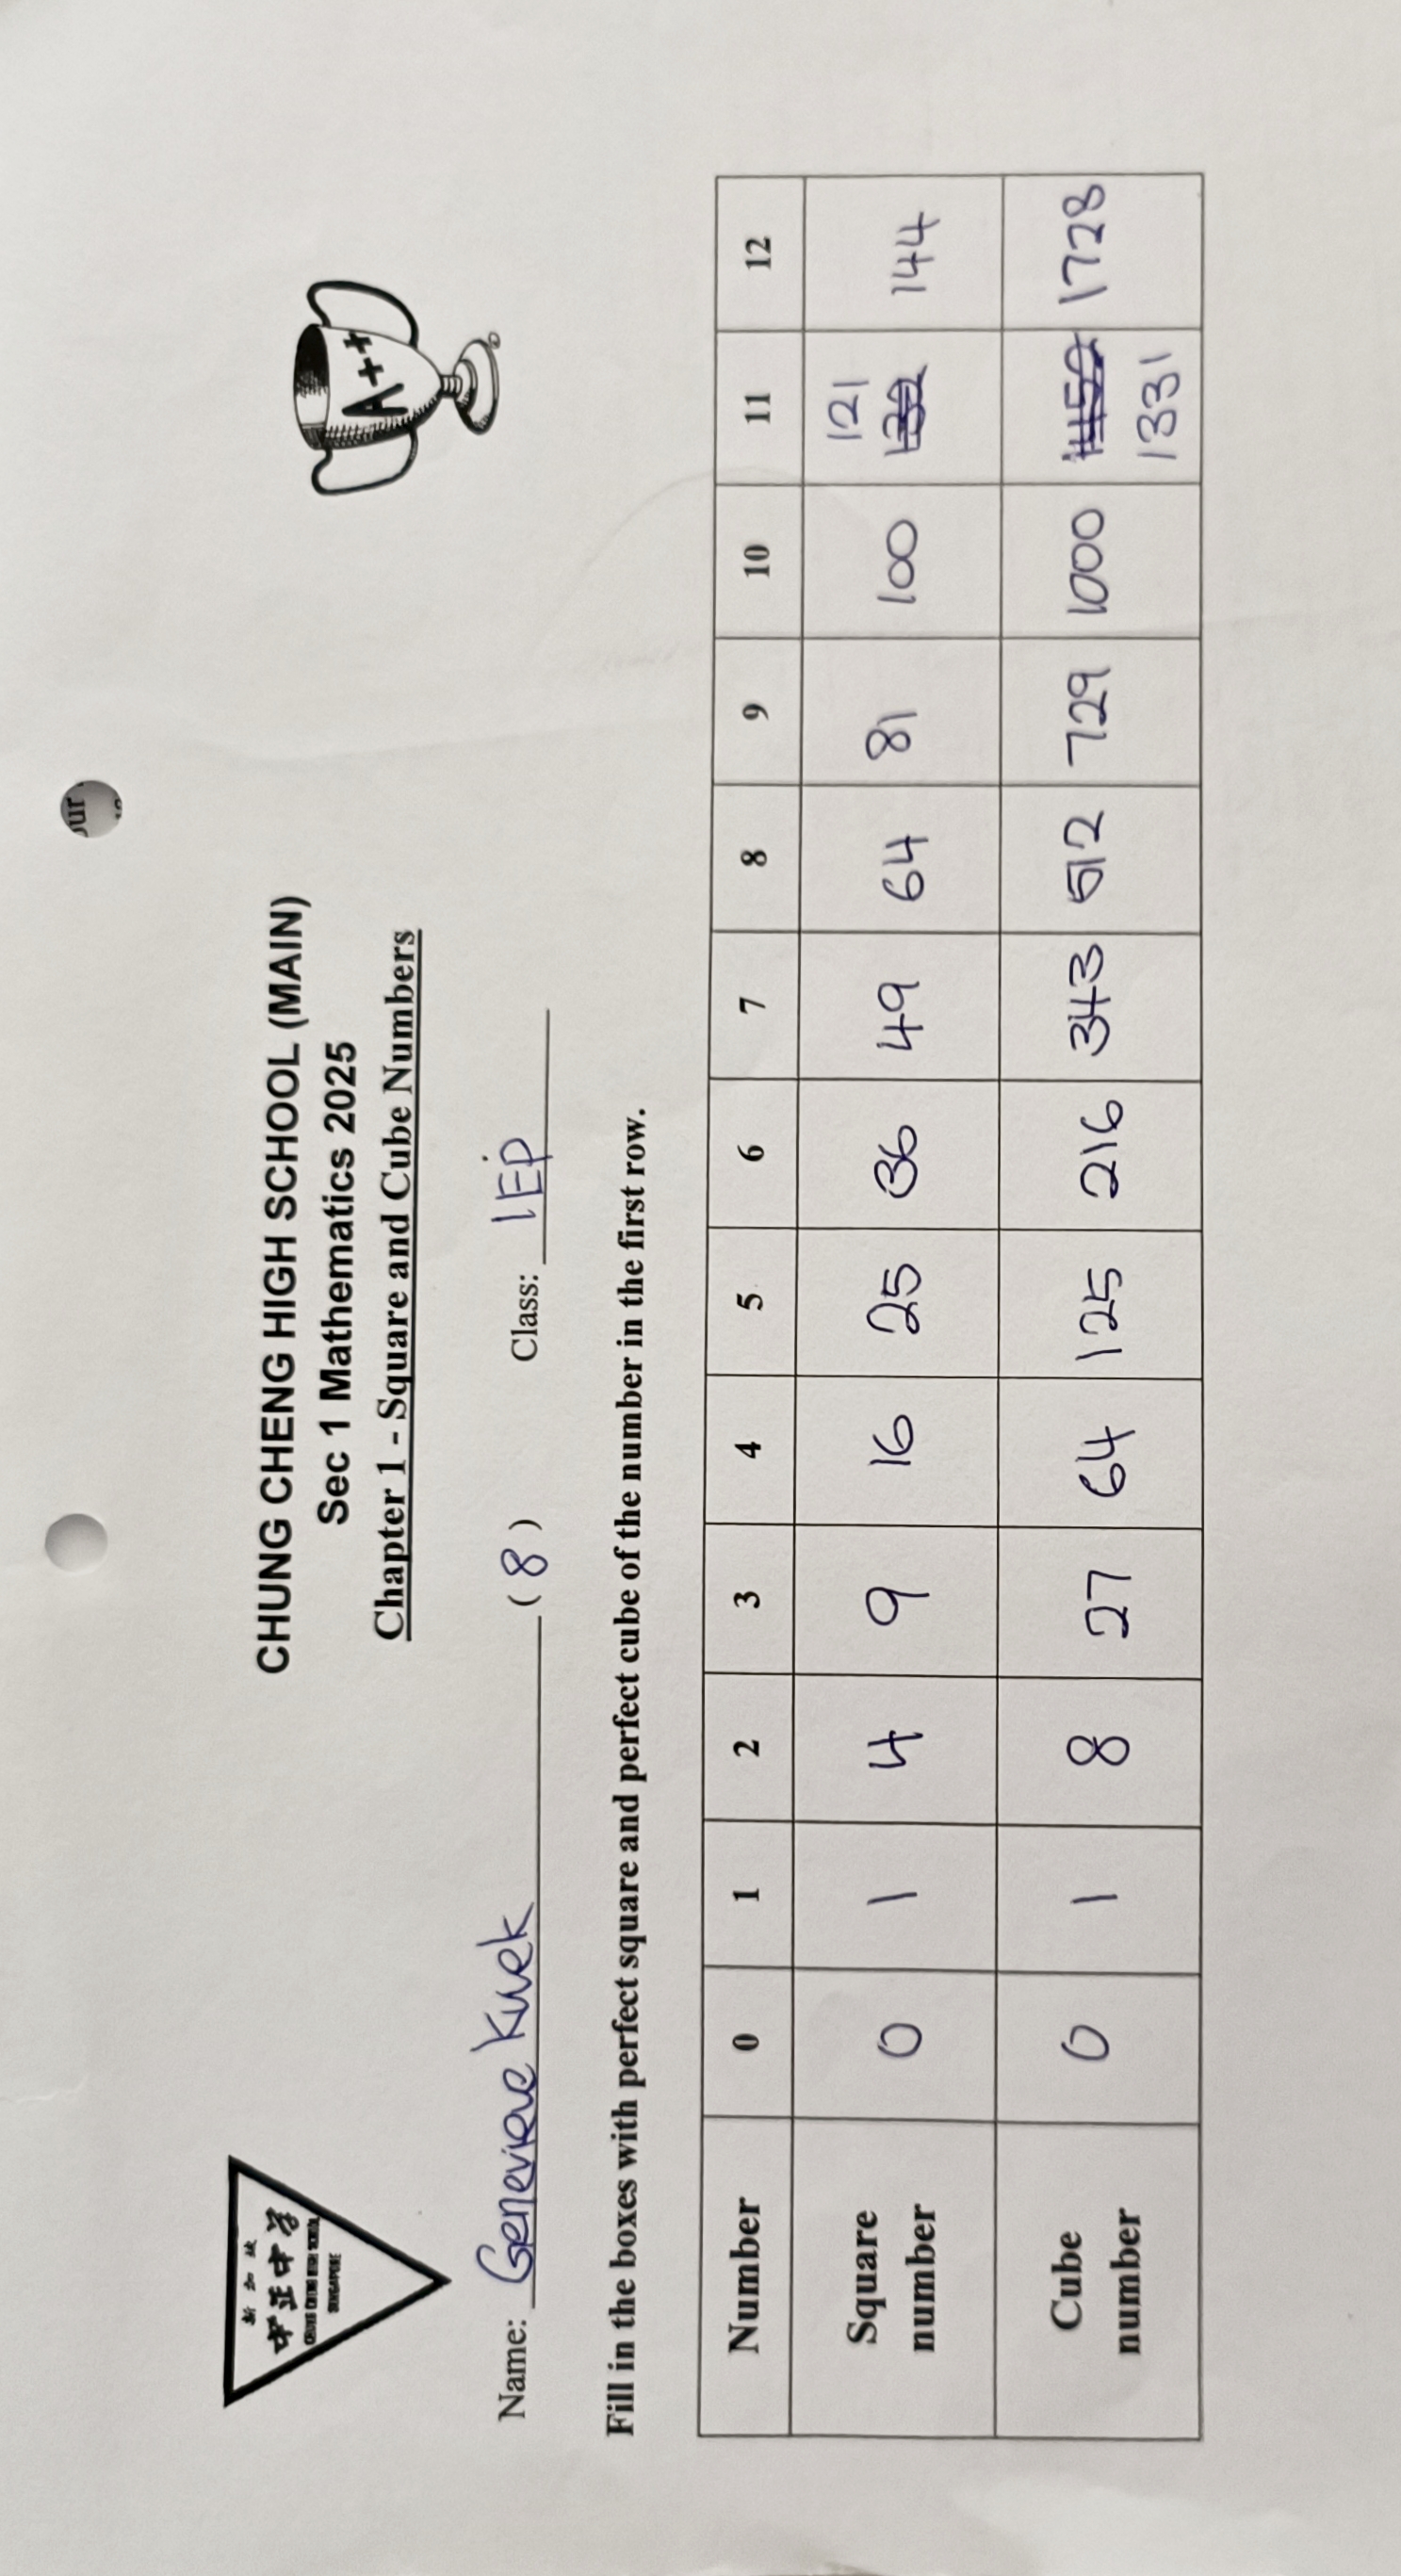 新加坡
中正中学
CHUNG CHENG HIGH SCHOOL
SINGAPORE
CHUNG CHENG HIGH SCHOOL (MAIN)
Sec 1 Mathematics 2025
Chapter 1 - Square and Cube Numbers
A++
Name: Genevieve Kwek (8) Class: 1EP
Fill in the boxes with perfect square and perfect cube of the number in the first row.
Number 0 1 2 3 4 5 6 7 8 9 10 11 12
Square number 0 1 4 9 16 25 36 49 64 81 100 121 144
Cube number 0 1 8 27 64 125 216 343 512 729 1000 1331 1728